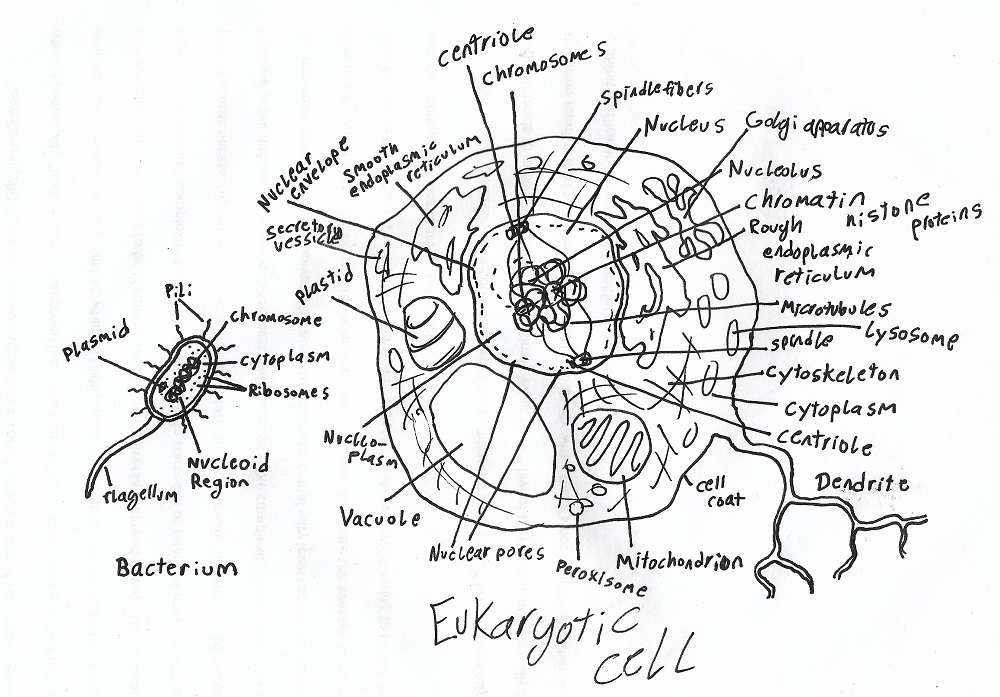 centriole
chromosomes
spindle fibers
Nucleus
Golgi apparatus
Nucleolus
Chromatin
histone
proteins
Rough
endoplasmic
reticulum
Microtubules
Lysosome
spindle
cytoskeleton
cytoplasm
centriole
Dendrite
cell
coat
Mitochondrion
Peroxisome
Nuclear pores
Vacuole
Nucleo-
plasm
plastid
secretory
vessicle
Nuclear
envelope
smooth
endoplasmic
reticulum
Eukaryotic
cell
Pili
chromosome
Plasmid
cytoplasm
Ribosomes
Nucleoid
Region
flagellum
Bacterium